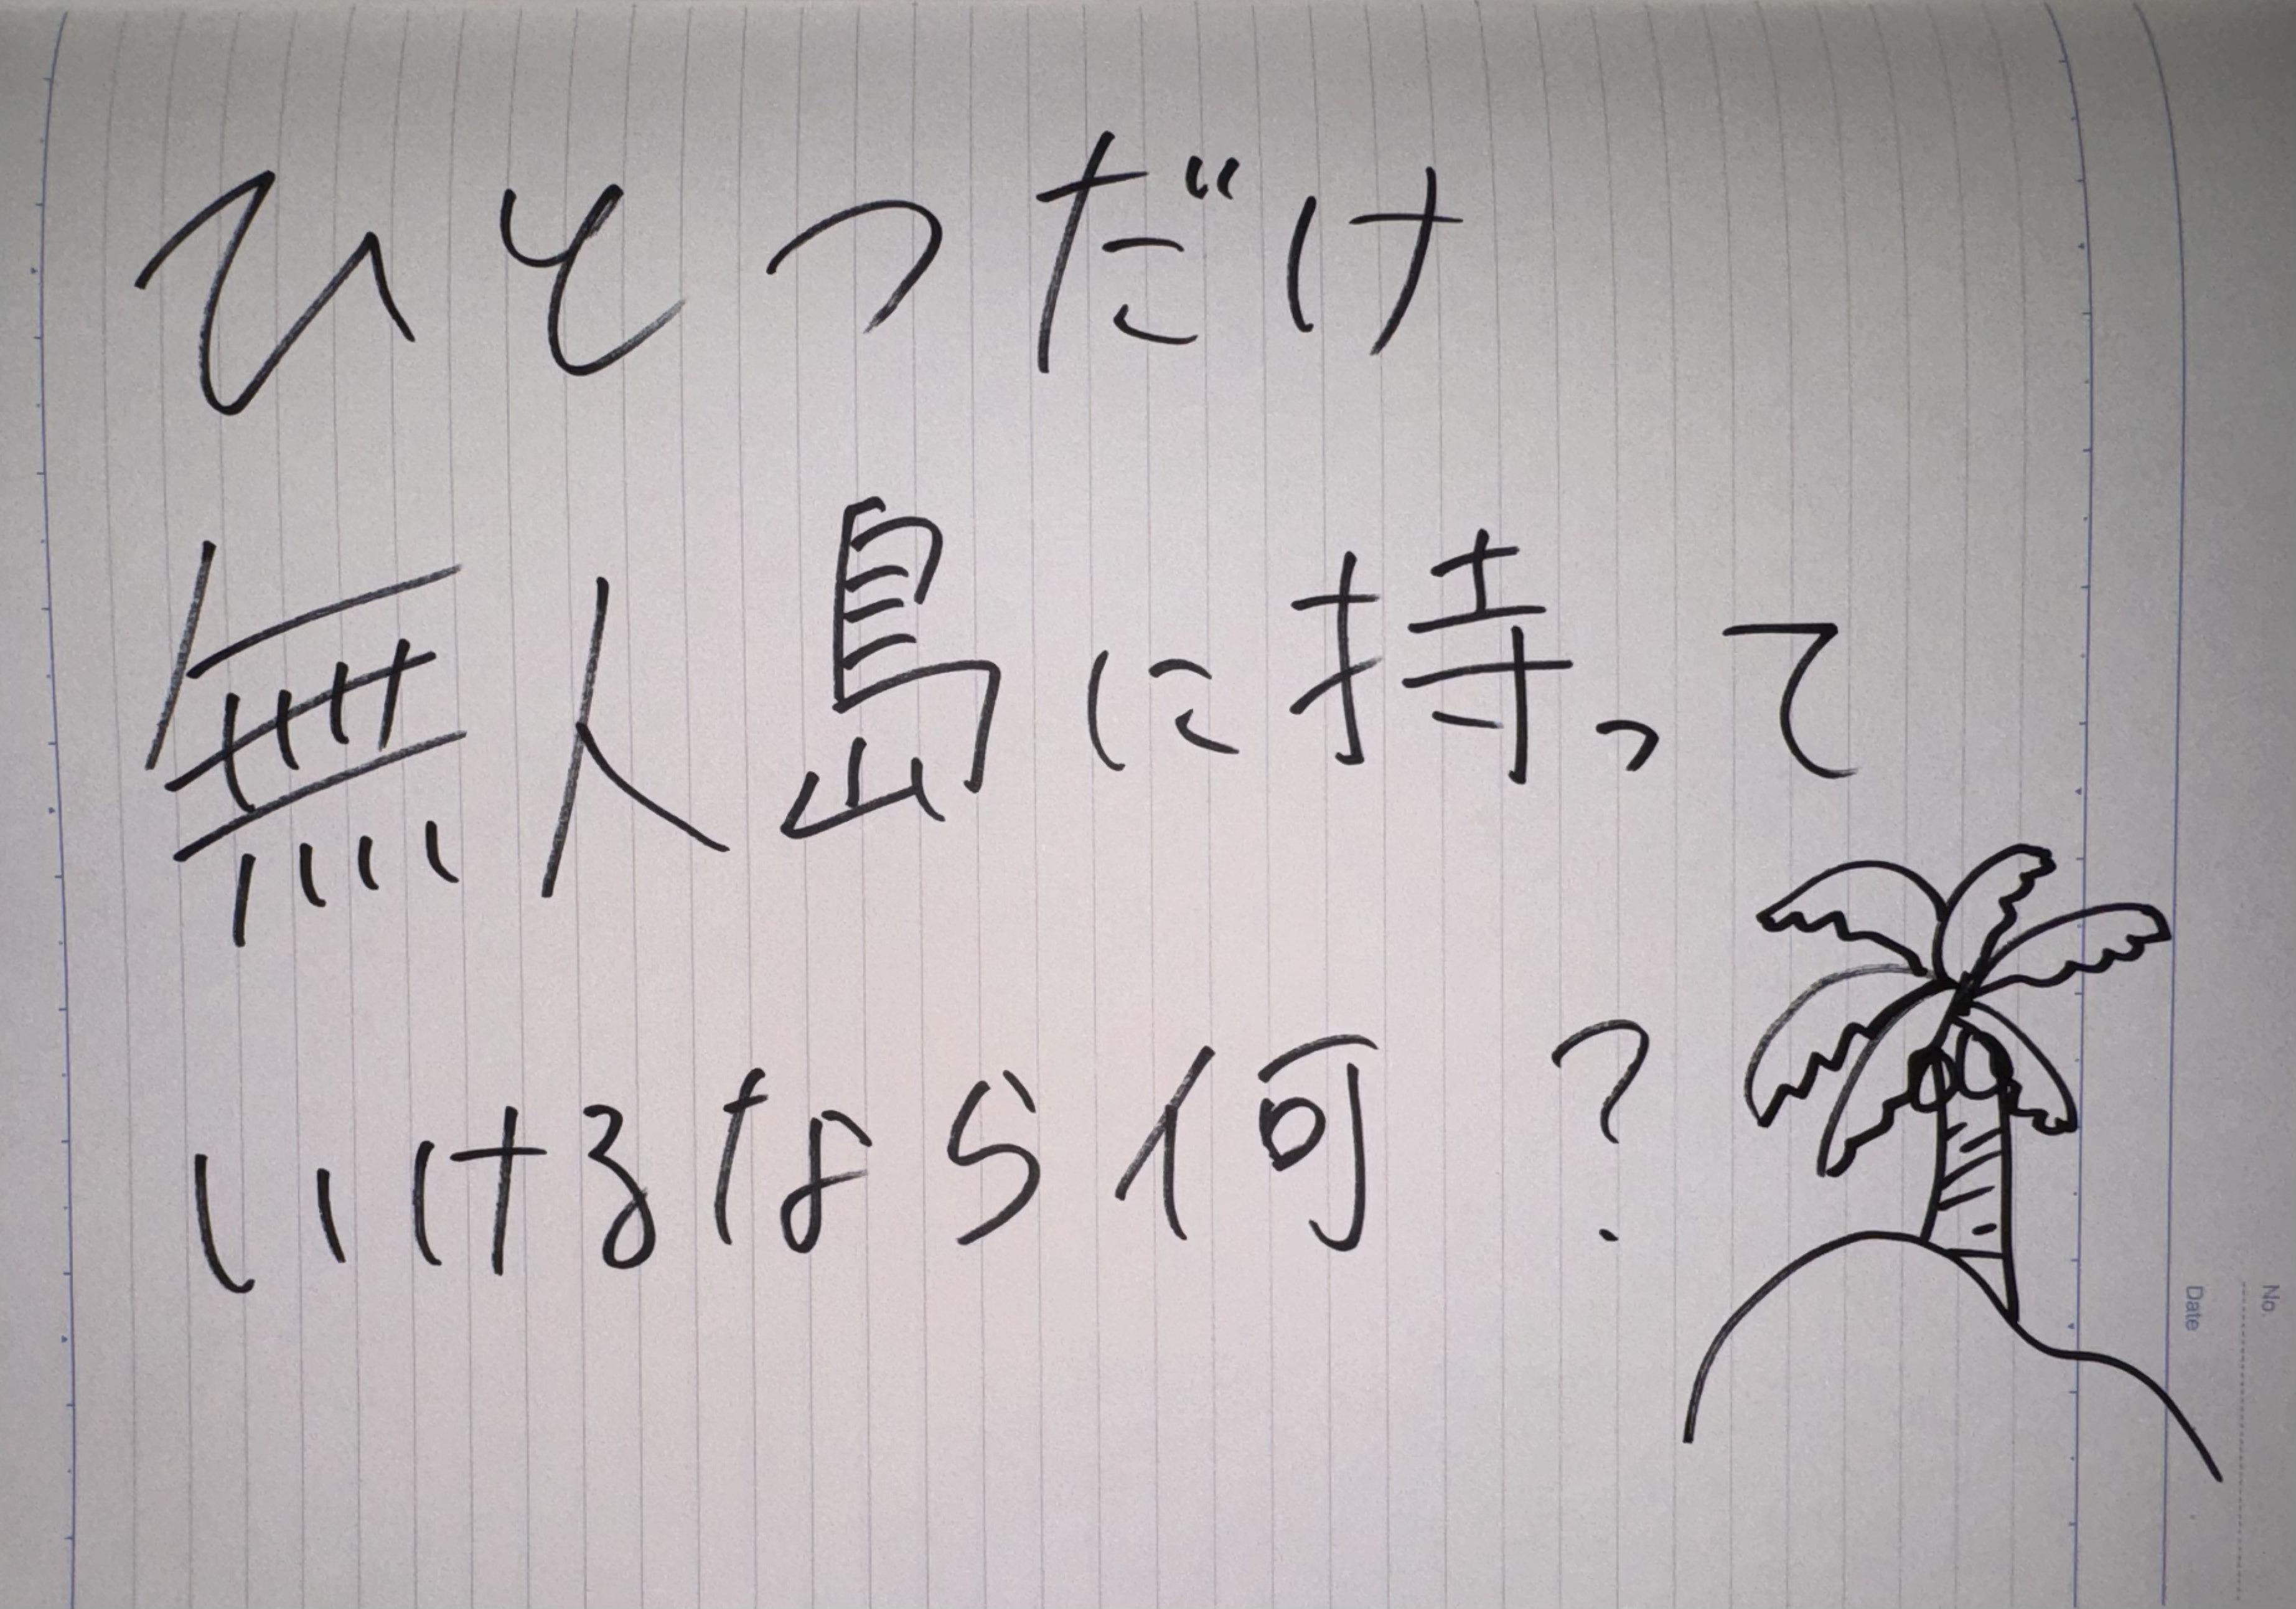 ひとつだけ
無人島に持って
いけるなら何?
No.
Date